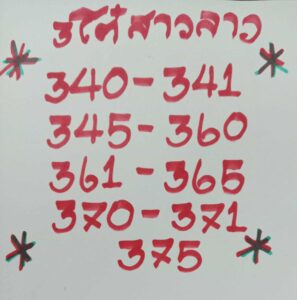 3โต๋สาวลาว
340-341
345-360
361-365
370-371
375